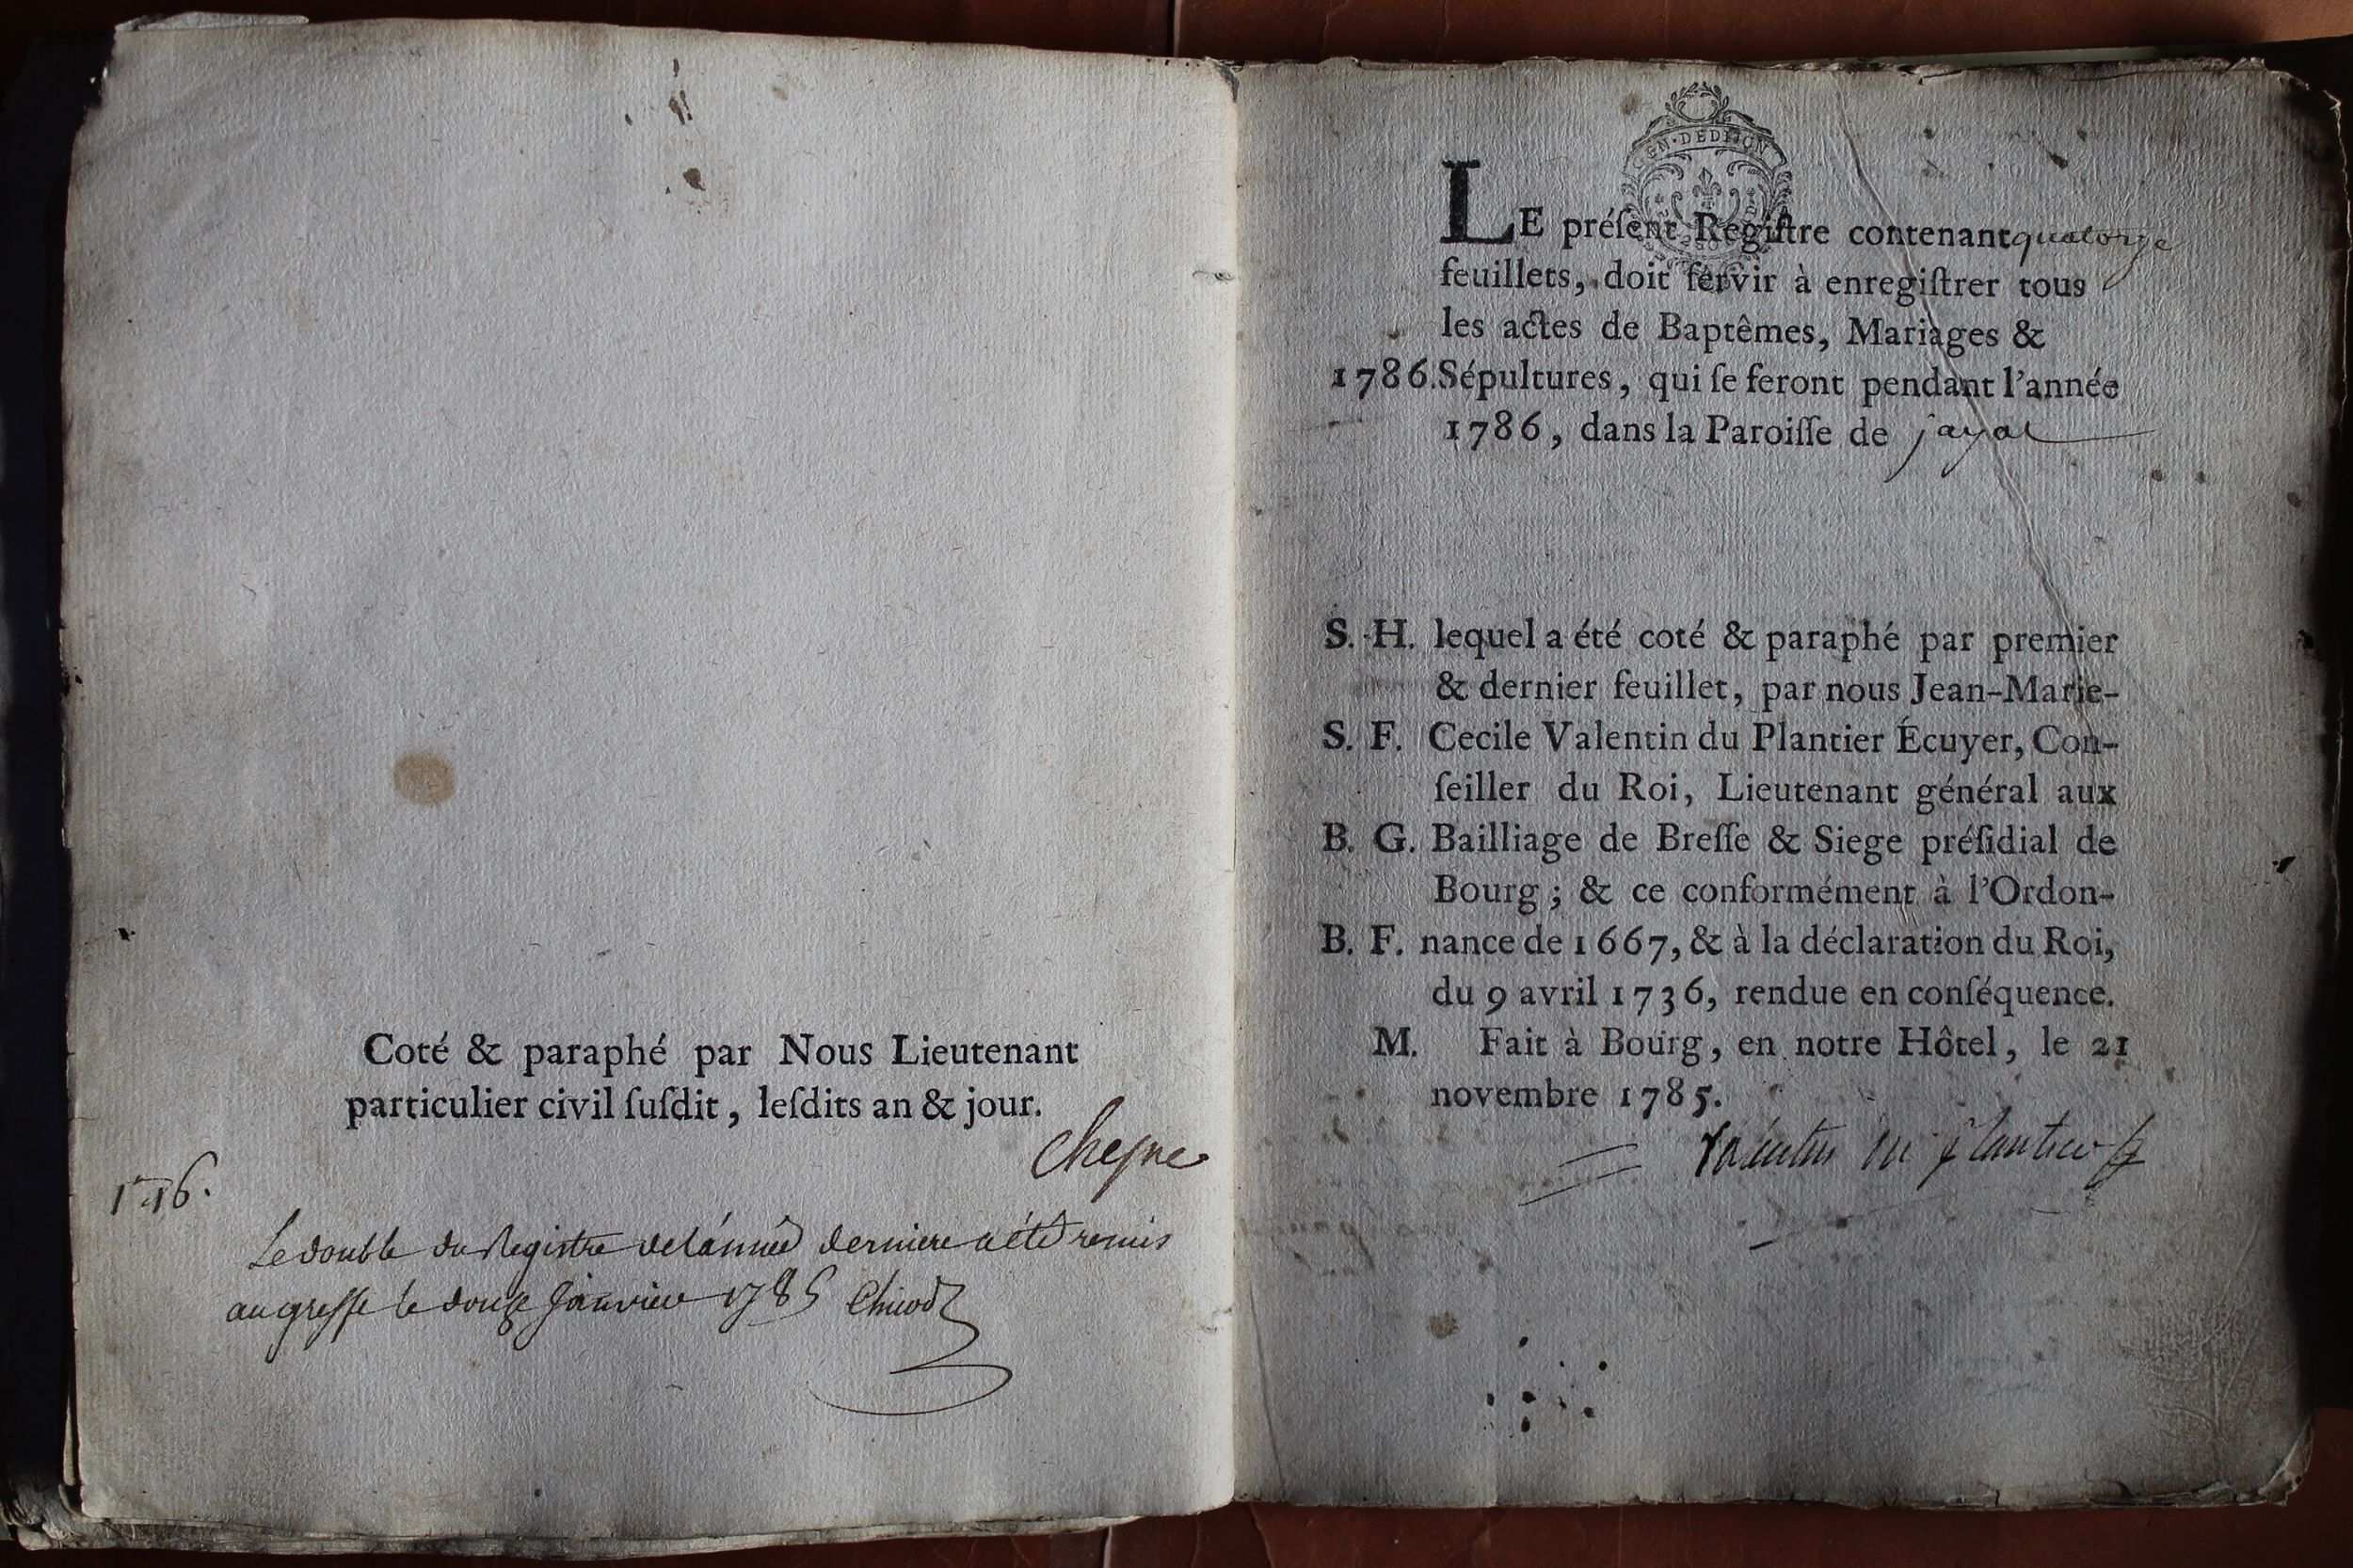 Coté & paraphé par Nous Lieutenant
particulier civil ſuſdit, leſdits an & jour.
Le double du Registre de lánnée derniere a été remis
au greffe le douze Janvier 1785
EN·DEDITION
LE préſent Regiſtre contenant quatorze
feuillets, doit ſervir à enregiſtrer tous
les actes de Baptêmes, Mariages &
1786. Sépultures, qui ſe feront pendant l'année
1786, dans la Paroiſſe de jayat
S. H. lequel a été coté & paraphé par premier
& dernier feuillet, par nous Jean-Marie-
S. F. Cecile Valentin du Plantier Écuyer, Con-
ſeiller du Roi, Lieutenant général aux
B. G. Bailliage de Breſſe & Siege préſidial de
Bourg; & ce conformément à l'Ordon-
B. F. nance de 1667, & à la déclaration du Roi,
du 9 avril 1736, rendue en conſéquence.
M. Fait à Bourg, en notre Hôtel, le 21
novembre 1785.
Valentin du plantier